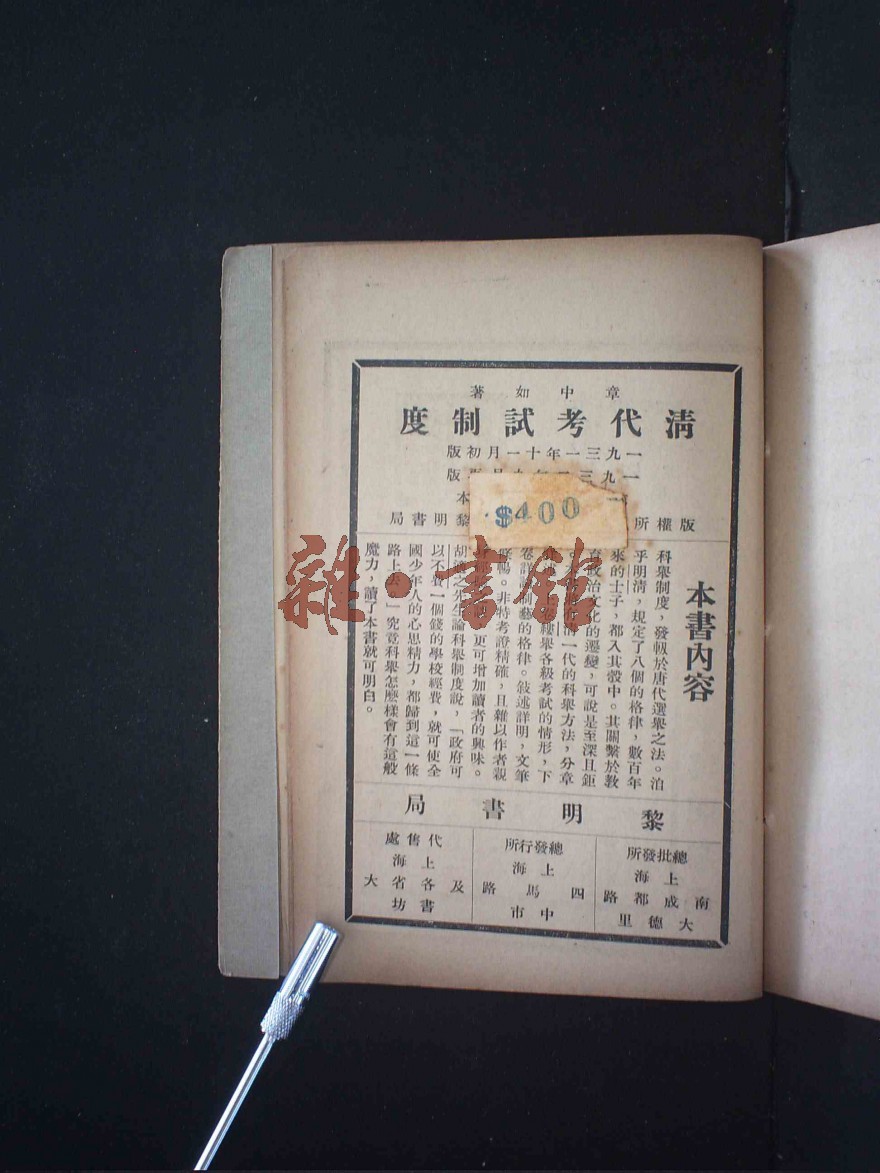 章中如著
清代考試制度
一九三一年十一月初版
一九三
版
本
版權所
黎明書局
$400
本書內容
科舉制度，發軔於唐代選舉之法。洎
乎明清，規定了八個的格律，數百年
來的士子，都入其彀中。其關繫於教
育政治文化的遷變，可說是至深且鉅
清一代的科舉方法，分章
舉各級考試的情形，下
卷詳 制藝的格律。敍述詳明，文筆
暢。非特考證精確，且雜以作者親
更可增加讀者的興味。
胡適之先生論科舉制度說，「政府可
以不費一個錢的學校經費，就可使全
國少年人的心思精力，都歸到這一條
路上去。」究竟科舉怎麼樣會有這般
魔力，讀了本書就可明白。
雜·書館
黎明書局
總批發所
上海
南成都路
大德里
總發行所
上海
四馬路
中市
代售處
上海
及各省大
書坊